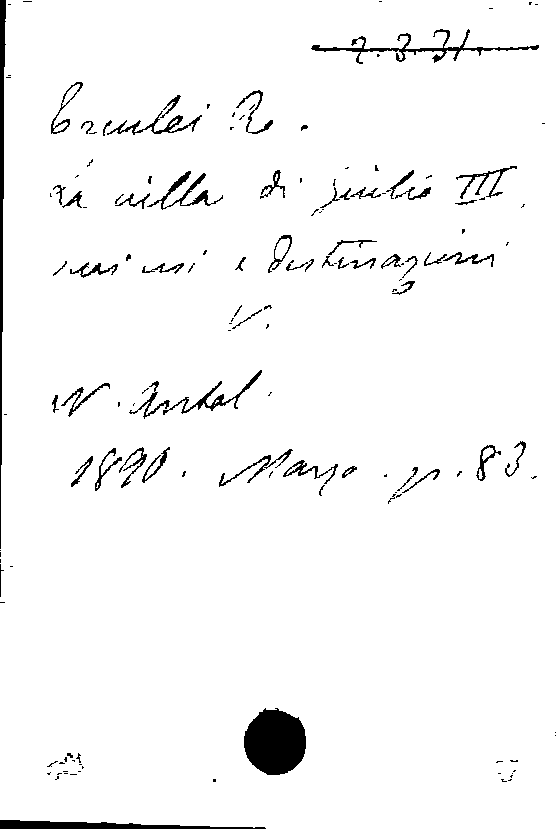 2.3.31.
Erculei R.
La villa di Giulio III
suoi usi e destinazioni
V.
N. Antol.
1890. Marzo. p. 83.